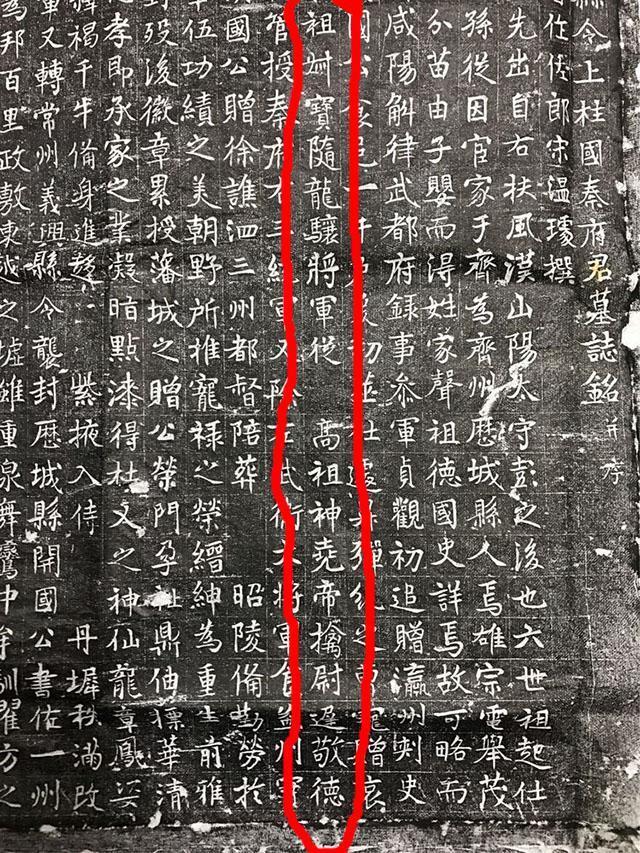 縣令上柱國秦府君墓誌銘 并序
作佐郎宋溫璩撰
先出自右扶風漢山陽太守彭之後也六世祖起仕
孫從因官家于齊為齊州歷城縣人焉雄宗電舉茂
分苗由子嬰而得姓家聲祖德國史詳焉故可略而
咸陽斛律武都府錄事參軍貞觀初追贈瀛州刺史
國公食邑一千戶贈哀
祖叔寶隨龍驤將軍從 高祖神堯帝擒尉遲敬德
管授秦府右三統軍又除左武衛大將軍食益州實
國公贈徐譙泗三州都督陪葬 昭陵備勤勞於
卒伍功績之美朝野所推寵祿之榮縉紳為重生前雅
對歿後徽章累授藩城之贈公榮門孕祉鼎伷摽華清
孝即承家之業凝暗點漆得杜乂之神仙龍章鳳姿
褐千牛備身進趍 紫掖入侍 丹墀秩滿改
軍又轉常州義興縣令襲封歷城縣開國公書佐一州
為邦百里政敷東越之墟雖重泉舞鸞中牟馴翟方之